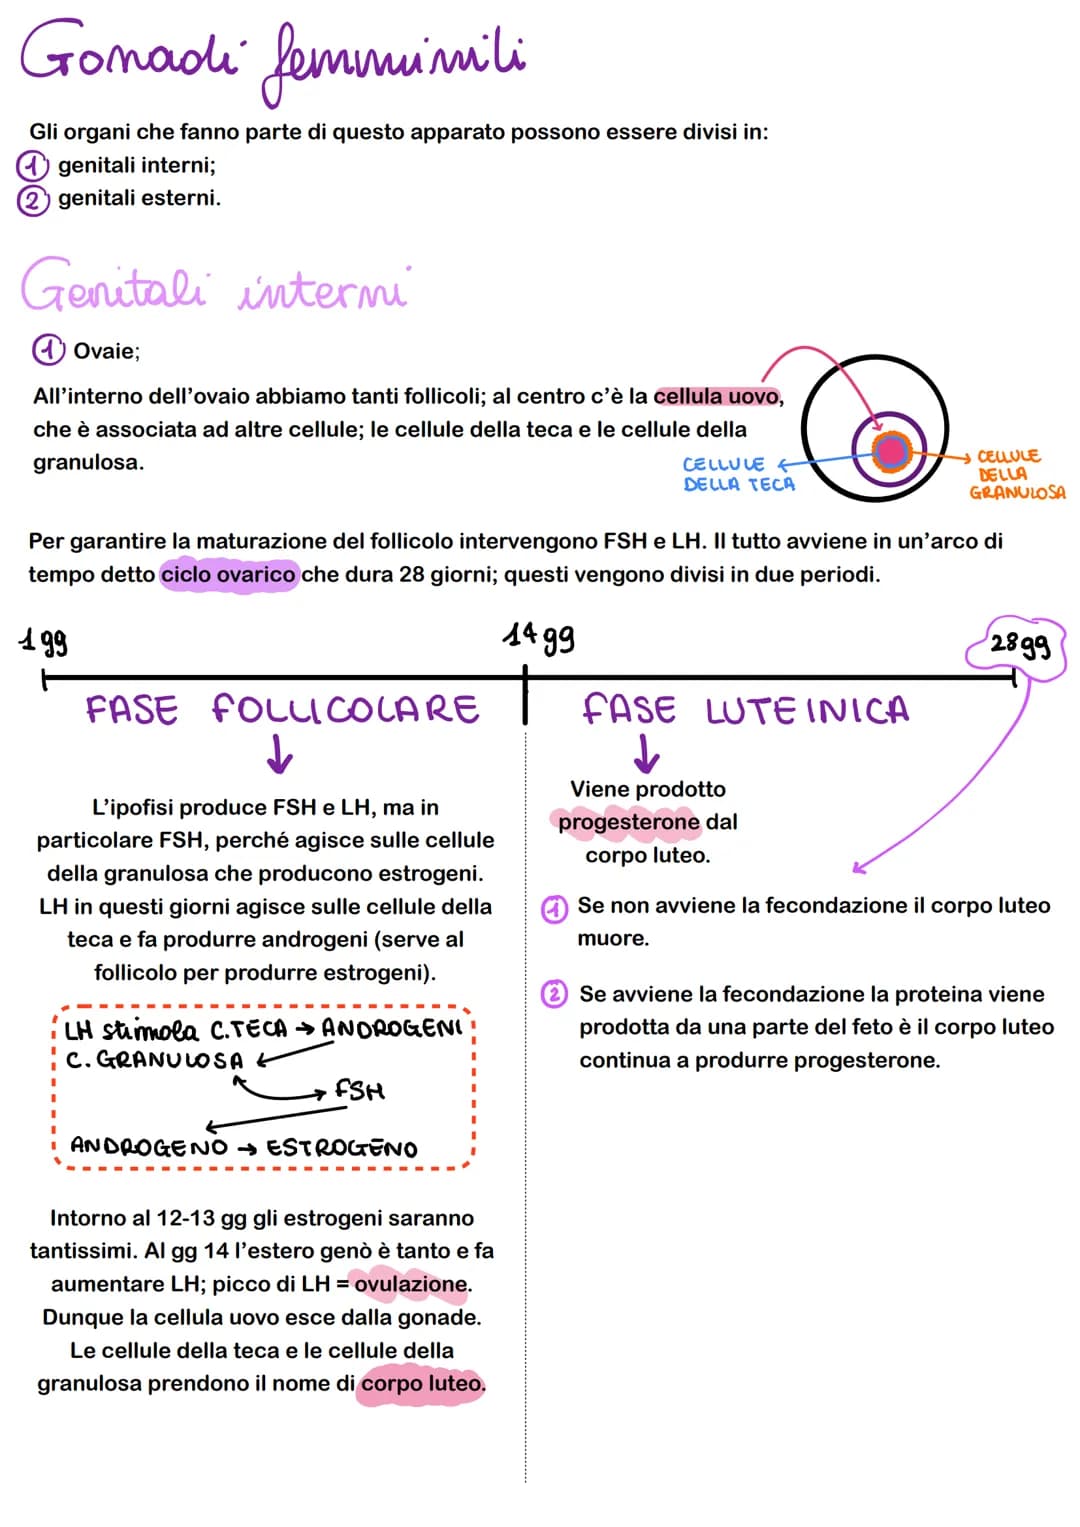 Gonadi femminili
Gli organi che fanno parte di questo apparato possono essere divisi in:
1 genitali interni;
2 genitali esterni.
Genitali interni
1 Ovaie;
All'interno dell'ovaio abbiamo tanti follicoli; al centro c'è la cellula uovo,
che è associata ad altre cellule; le cellule della teca e le cellule della
granulosa.
CELLULE
DELLA TECA
CELLULE
DELLA
GRANULOSA
Per garantire la maturazione del follicolo intervengono FSH e LH. Il tutto avviene in un'arco di
tempo detto ciclo ovarico che dura 28 giorni; questi vengono divisi in due periodi.
1 gg
14 gg
28 gg
FASE FOLLICOLARE
↓
L'ipofisi produce FSH e LH, ma in
particolare FSH, perché agisce sulle cellule
della granulosa che producono estrogeni.
LH in questi giorni agisce sulle cellule della
teca e fa produrre androgeni (serve al
follicolo per produrre estrogeni).
LH stimola C.TECA → ANDROGENI
C. GRANULOSA
FSH
ANDROGENO → ESTROGENO
Intorno al 12-13 gg gli estrogeni saranno
tantissimi. Al gg 14 l'estero genò è tanto e fa
aumentare LH; picco di LH = ovulazione.
Dunque la cellula uovo esce dalla gonade.
Le cellule della teca e le cellule della
granulosa prendono il nome di corpo luteo.
FASE LUTEINICA
↓
Viene prodotto
progesterone dal
corpo luteo.
1 Se non avviene la fecondazione il corpo luteo
muore.
2 Se avviene la fecondazione la proteina viene
prodotta da una parte del feto è il corpo luteo
continua a produrre progesterone.